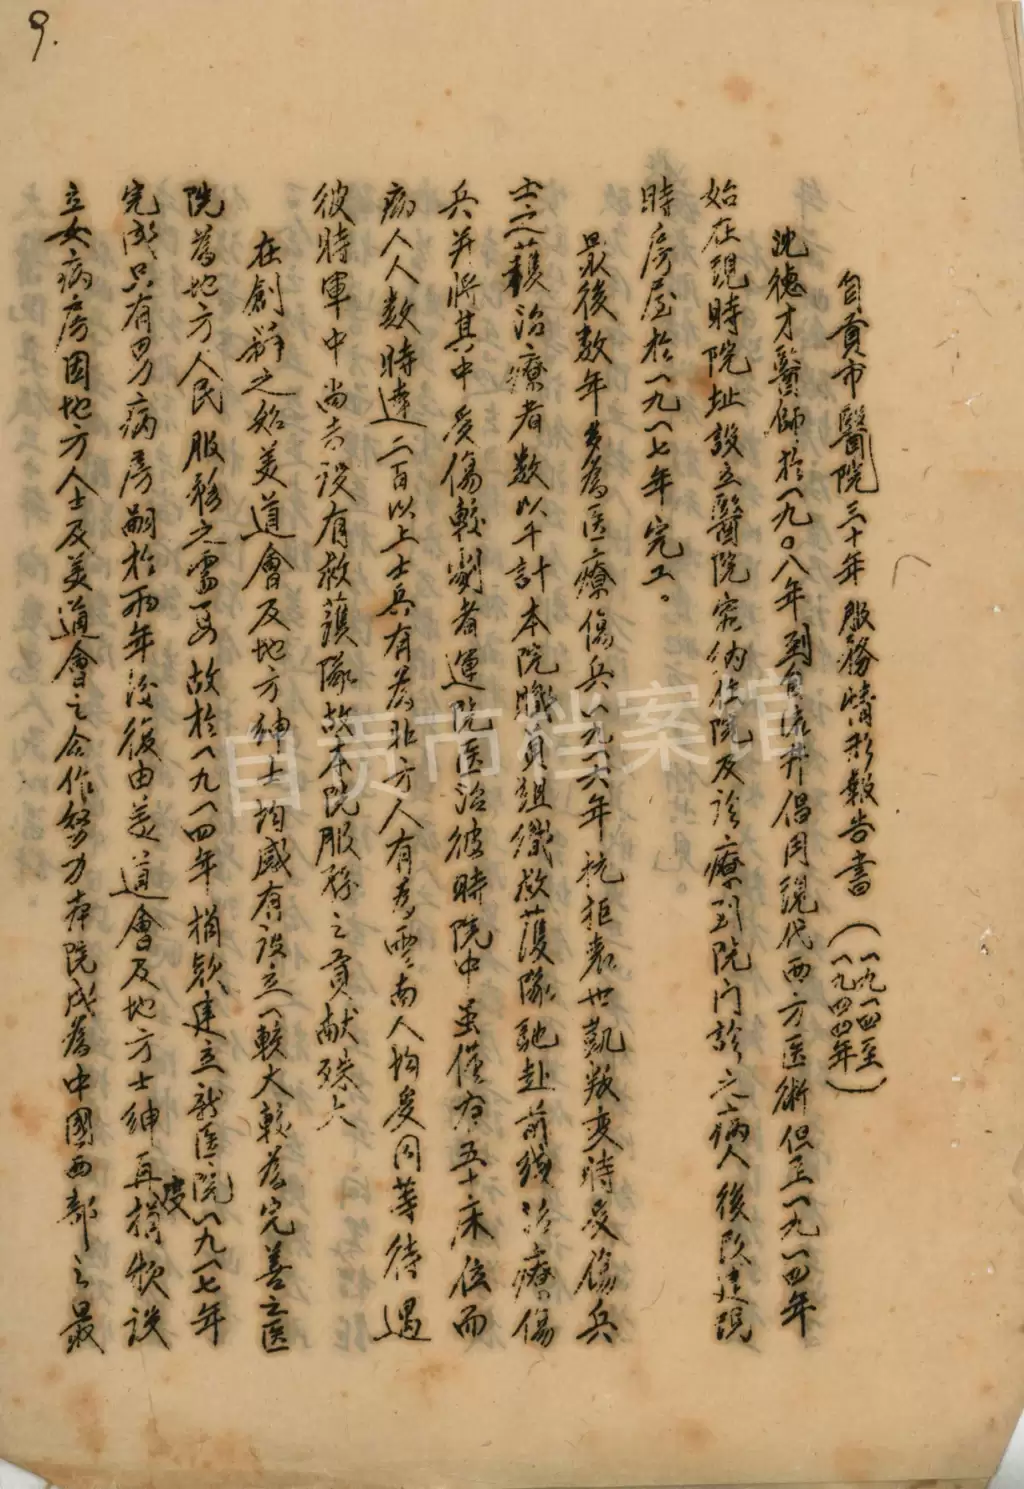 9.
自貢市醫院三十年服務情形報告書（一九一四至一九四四年）
沈德才醫師於一九〇八年到自流井倡用現代西方医術但至一九一四年
始在現時院址設立醫院容納住院及診療到院門診之病人後改建現
時房屋於一九一七年完工。
最後数年多為医療傷兵一九一六年抗拒袁世凱叛变時受傷兵
士之護治療者数以千計本院職員組織救護隊馳赴前綫治療傷
兵并將其中受傷較劇者運院医治彼時院中虽僅有五十床位而
病人人数時達二百以上士兵有為北方人有為雲南人均受同等待遇
彼時軍中尚未设有救護隊故本院服務之貢献殊大
在創辦之始美道會及地方紳士均感有设立一較大較為完善之医
院為地方人民服務之需要故於一九一四年捐款建立新医院一九一七年
完成只有男病房嗣於兩年後復由美道會及地方士紳再度捐款设
立女病房因地方人士及美道會之合作努力本院成為中國西部之最
自贡市档案馆